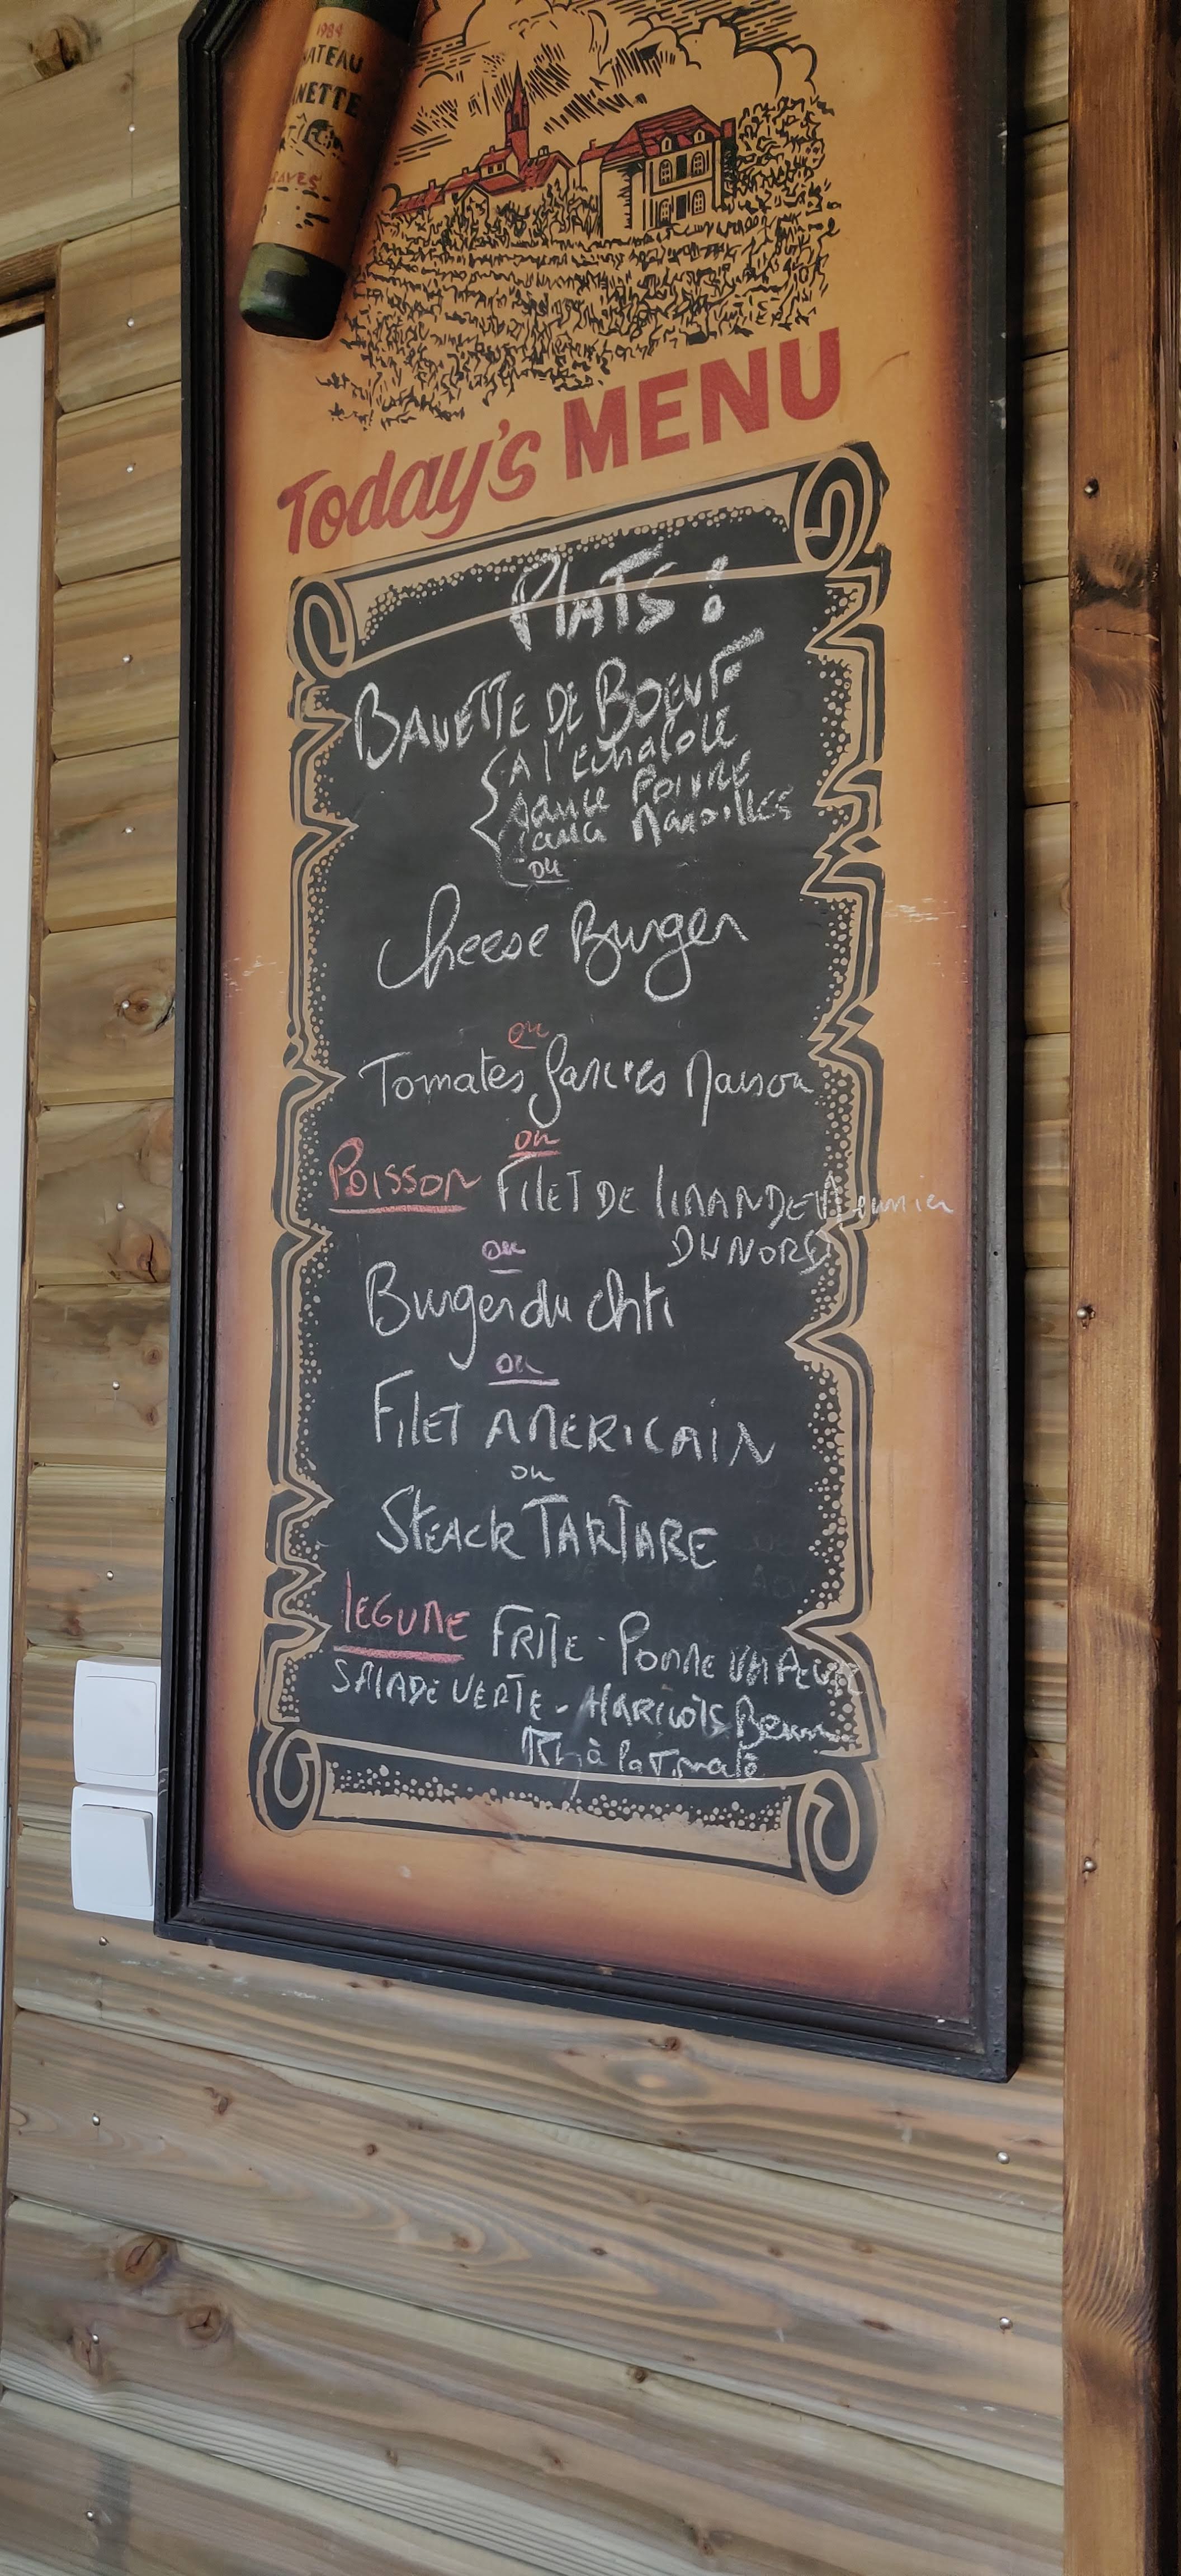 1984
NETTE
Today's MENU
PLATS :
BAVETTE DE BOEUF
A l'Echalote
sauce POIVRE
sauce Maroilles
ou
Cheese Burger
ou
Tomates farcies Maison
ou
POISSON FILET DE LIMANDE Meunier
DU NORD
ou
Burger du Chti
ou
FILET AMERICAIN
ou
STEACK TARTARE
LEGUME FRITE - POMME VAPEUR
SALADE VERTE - HARICOTS Beurre
Riz à la Tomate